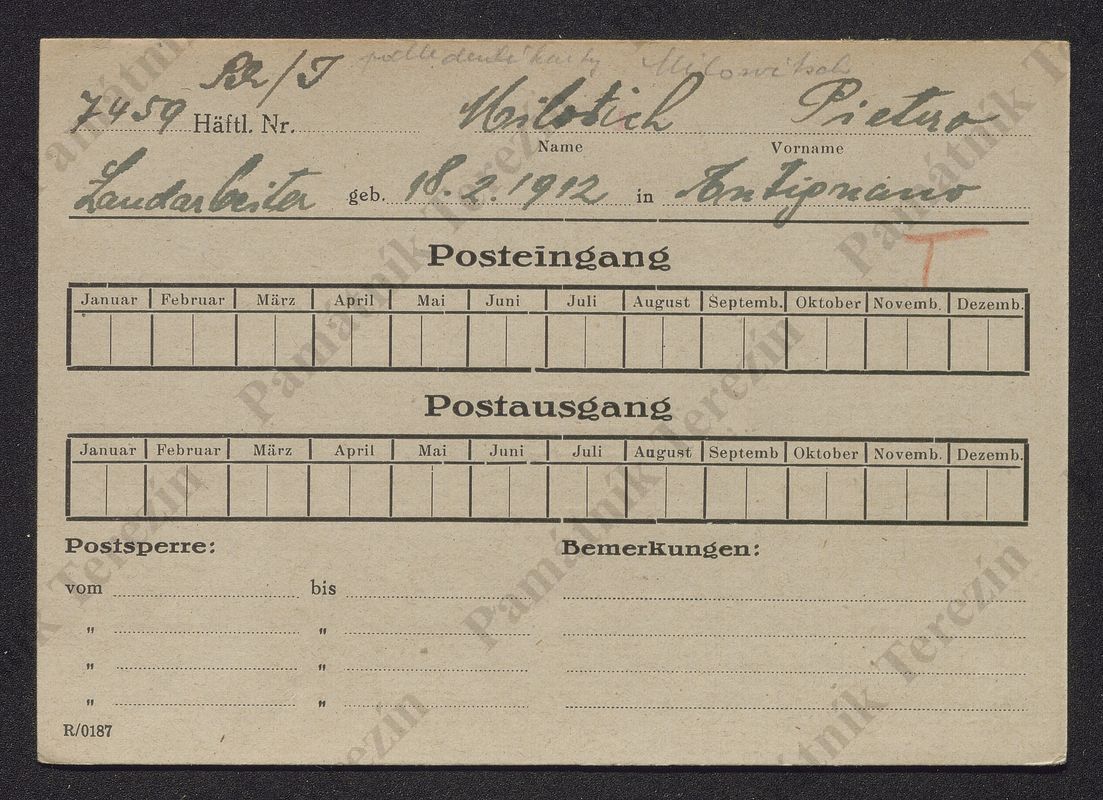 /I Milowitsch
7459 Häftl. Nr. Milotich Pietro
Name Vorname
Landarbeiter geb. 18.2.1912 in Antignano
T
Posteingang
Januar Februar März April Mai Juni Juli August Septemb. Oktober Novemb. Dezemb.
Postausgang
Januar Februar März April Mai Juni Juli August Septemb Oktober Novemb. Dezemb.
Postsperre: Bemerkungen:
vom bis
" "
" "
" "
R/0187
Památník Terezín